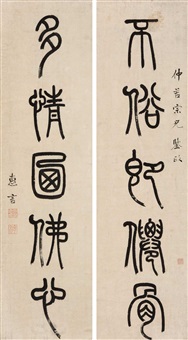 仲宗兄鑒政
不俗即僊骨
多情迺佛心
惠言